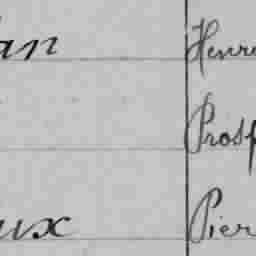 an Henr
Prosp
ux Pier